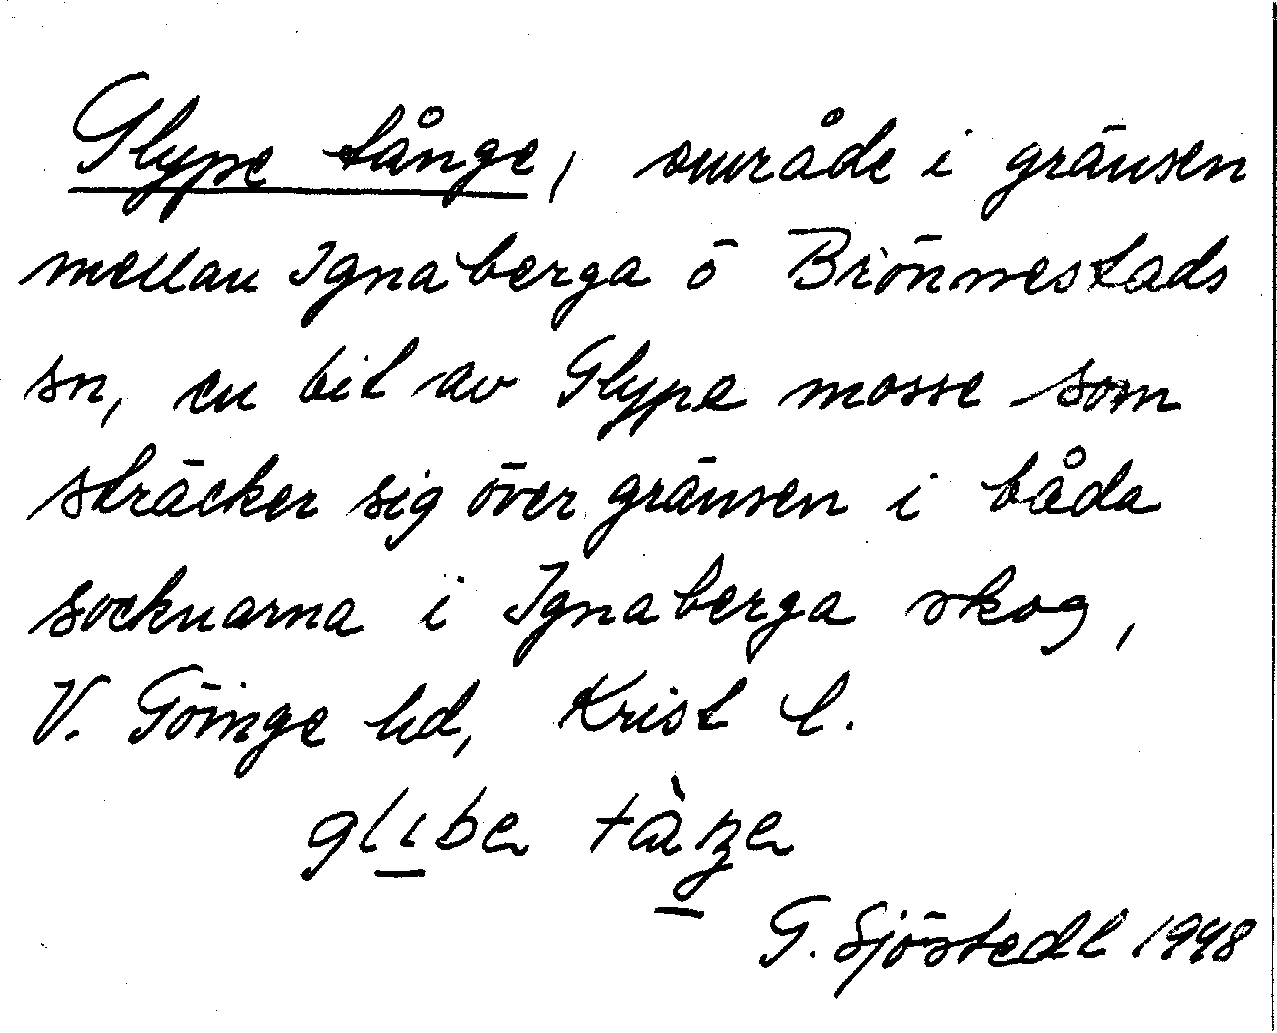 Glype tånge, område i gränsen
mellan Ignaberga ō Brönnestads
sn, en bit av Glype mosse som
sträcker sig över gränsen i båda
socknarna i Ignaberga skog,
V. Göinge hd, Krist l.
glıbe
G. Sjöstedt 1948